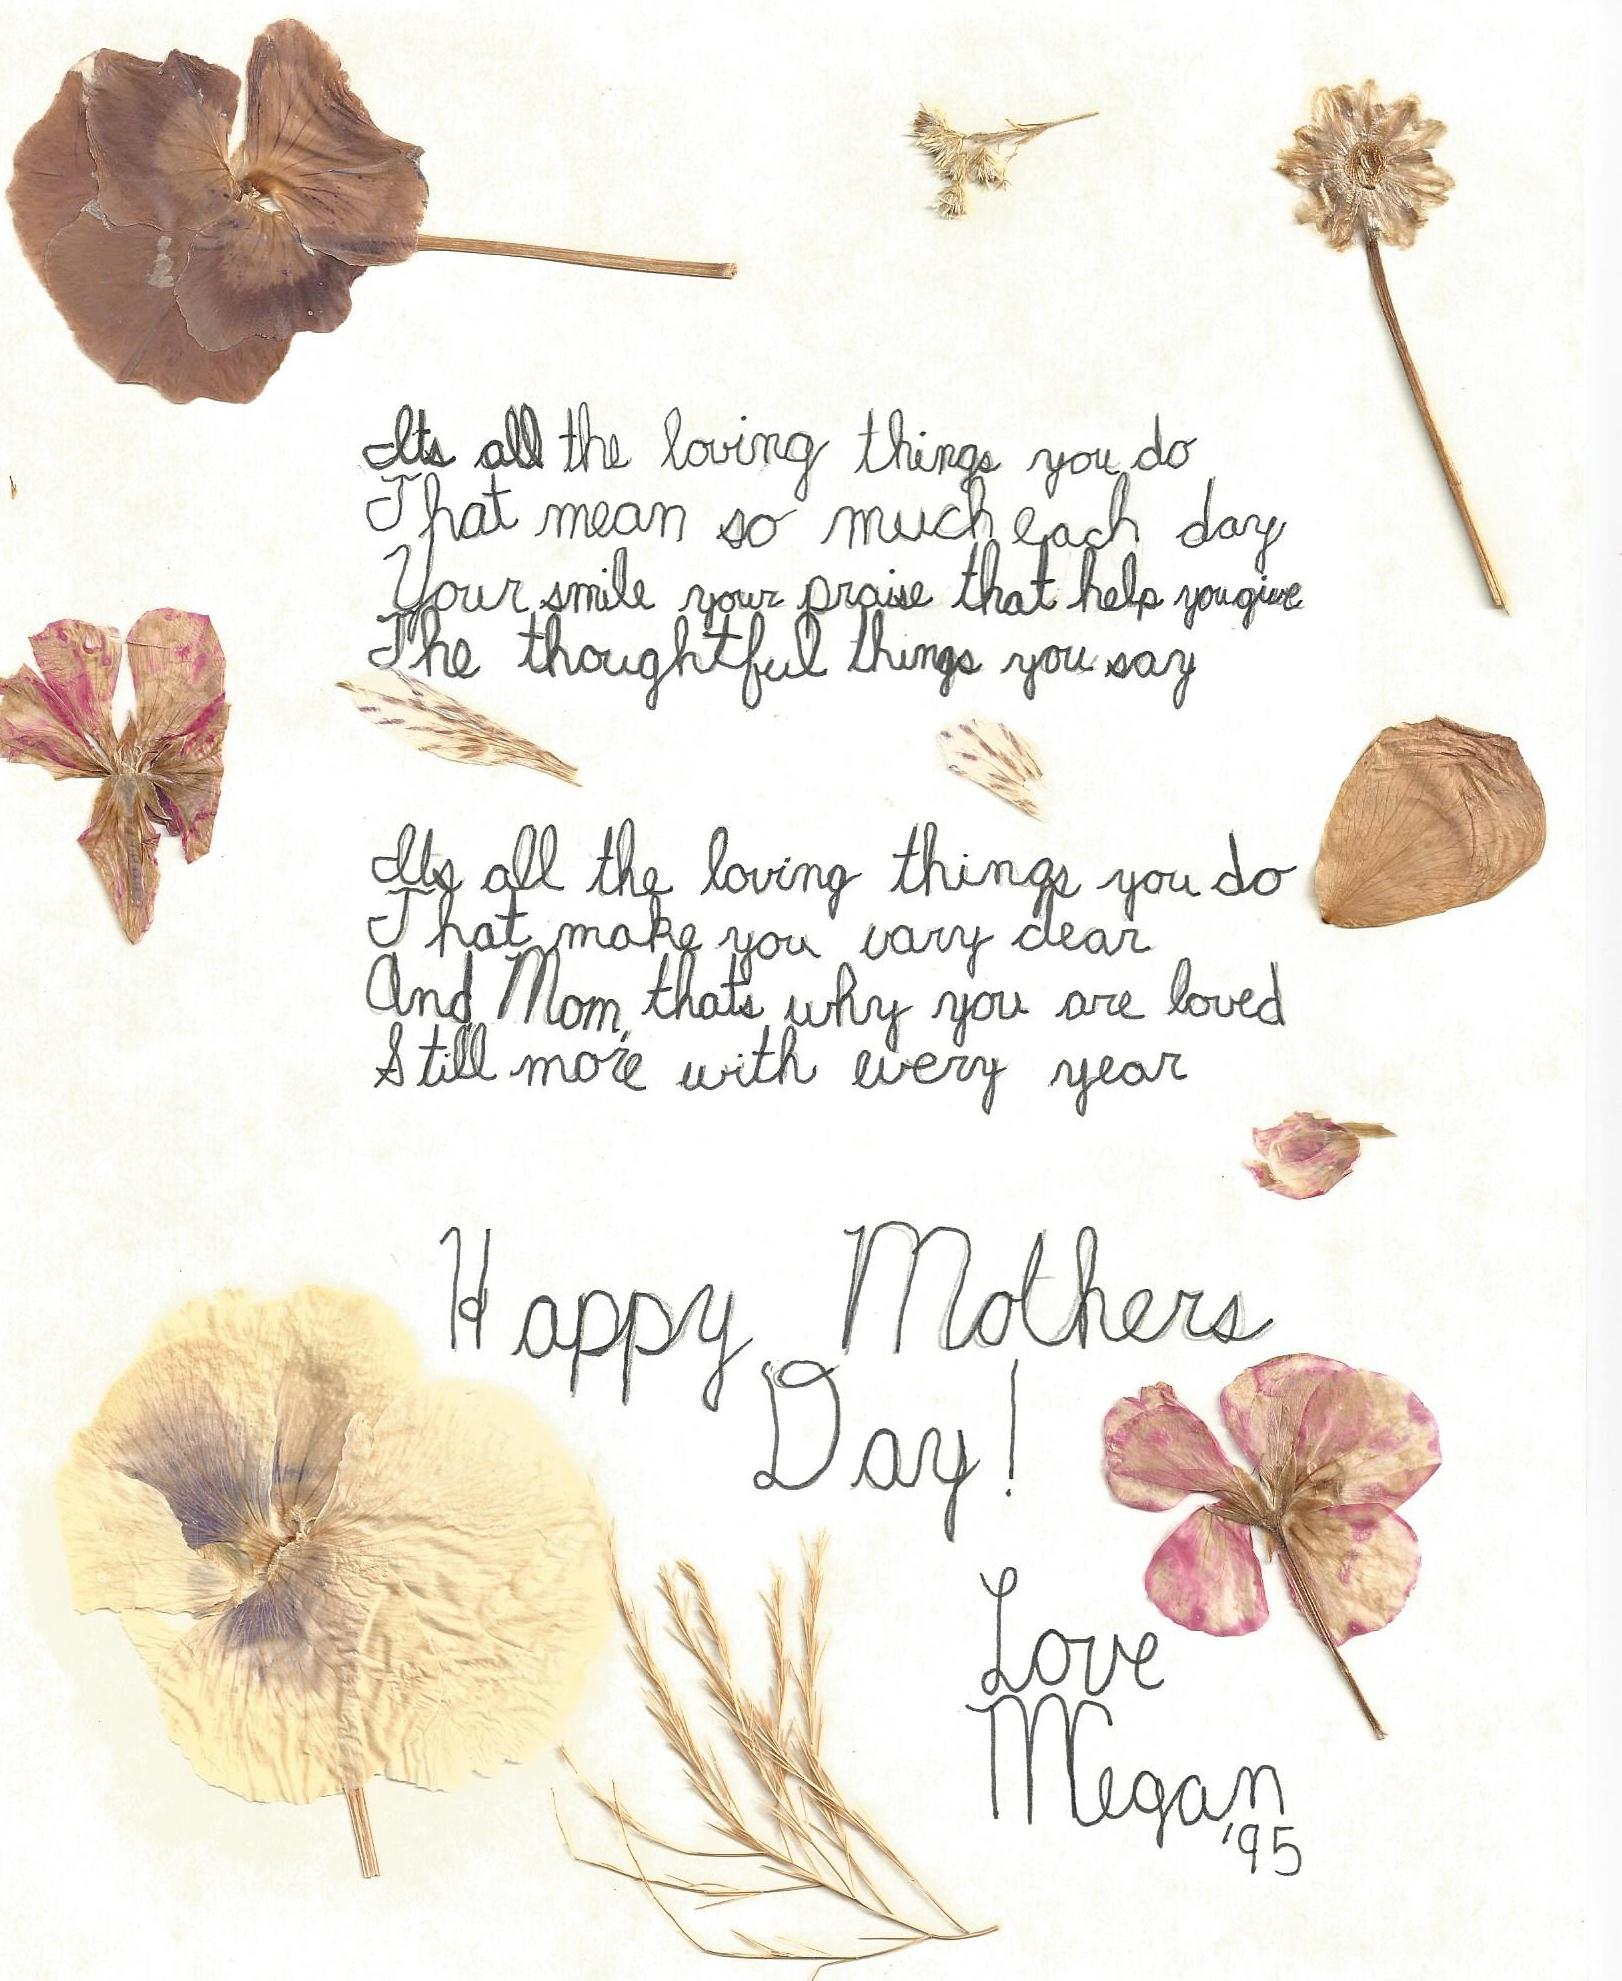 Its all the loving things you do
That mean so much each day
Your smile your praise that help you give
The thoughtful things you say
Its all the loving things you do
That make you vary dear
And Mom, thats why you are loved
Still more with every year
Happy Mothers
Day!
Love
Megan
'95